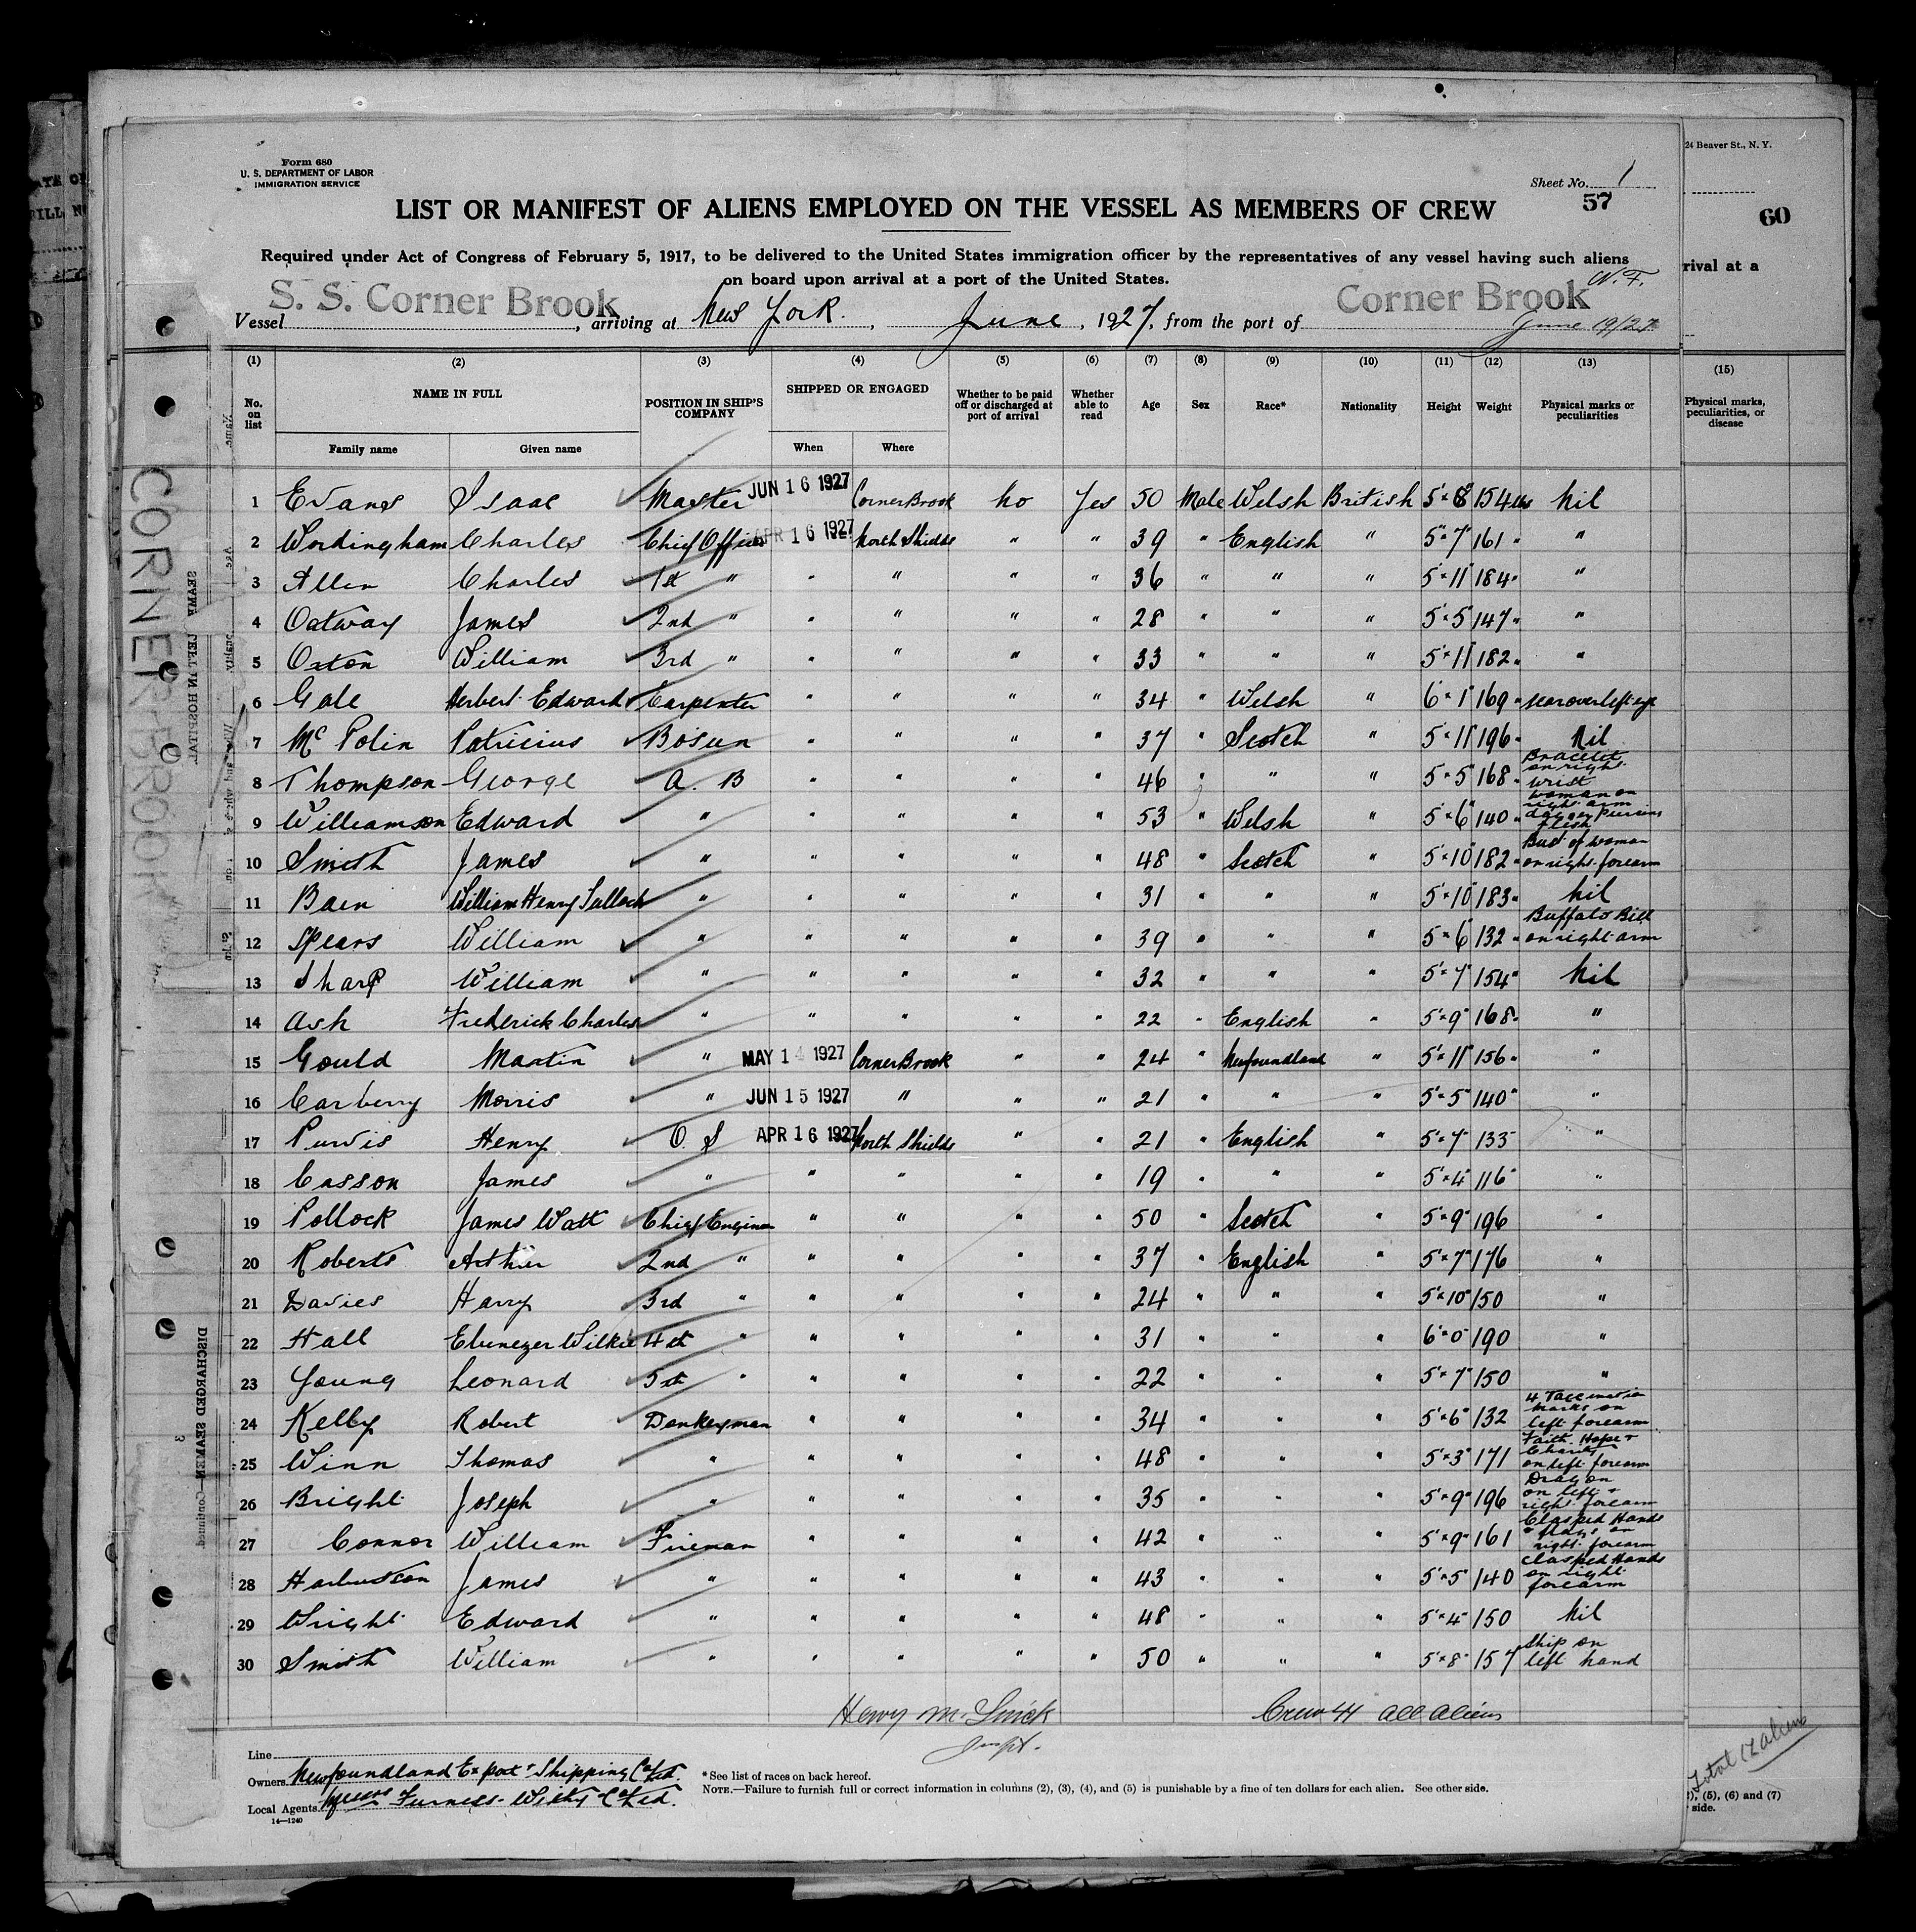 Form 680
U. S. DEPARTMENT OF LABOR
IMMIGRATION SERVICE
Sheet No. 1
57
LIST OR MANIFEST OF ALIENS EMPLOYED ON THE VESSEL AS MEMBERS OF CREW
Required under Act of Congress of February 5, 1917, to be delivered to the United States immigration officer by the representatives of any vessel having such aliens
on board upon arrival at a port of the United States.
Vessel S. S. Corner Brook, arriving at New York., June, 1927, from the port of Corner Brook N. F.
June 19/27
24 Beaver St., N. Y.
60
rival at a
(1) (2) (3) (4) (5) (6) (7) (8) (9) (10) (11) (12) (13) (15)
No. on list NAME IN FULL POSITION IN SHIP'S COMPANY SHIPPED OR ENGAGED Whether to be paid off or discharged at port of arrival Whether able to read Age Sex Race* Nationality Height Weight Physical marks or peculiarities Physical marks, peculiarities, or disease
Family name Given name When Where
1 Evans Isaac Master JUN 16 1927 Corner Brook No Yes 50 Male Welsh British 5' 8 154 lbs Nil
2 Wordingham Charles Chief Officer APR 16 1927 North Shields " " 39 " English " 5" 7" 161 " "
3 Allen Charles 1st " " " " " 36 " " " 5" 11" 184 " "
4 Oatway James 2nd " " " " " 28 " " " 5" 5" 147 " "
5 Oxton William 3rd " " " " " 33 " " " 5" 11" 182 " "
6 Gale Herbert Edward Carpenter " " " " 34 " Welsh " 6" 1" 169 " scar over left eye
7 Mc Polin Patricius Bosun " " " " 37 " Scotch " 5" 11" 196 " Nil
8 Thompson George A. B " " " " 46 " " " 5" 5" 168 " Bracelet on right wrist
9 Williamson Edward " " " " " 53 " Welsh " 5" 6" 140 " woman on right arm dagger piercing flesh
10 Smith James " " " " " 48 " Scotch " 5" 10" 182 " Bust of woman on right forearm
11 Bain William Henry Tulloch " " " " " 31 " " " 5" 10" 183 " Nil
12 Spears William " " " " " 39 " " " 5" 6" 132 " Buffalo Bill on right arm
13 Sharp William " " " " " 32 " " " 5" 7" 154 " Nil
14 Ash Frederick Charles " " " " " 22 " English " 5" 9" 168 " "
15 Gould Martin " MAY 14 1927 Corner Brook " " 24 " Newfoundland " 5" 11" 156 " "
16 Carberry Morris " JUN 15 1927 " " " 21 " " " 5" 5" 140 " "
17 Purvis Henry O. S APR 16 1927 North Shields " " 21 " English " 5" 7" 133 "
18 Casson James " " " " " 19 " " " 5" 4" 116 "
19 Pollock James Watt Chief Engineer " " " " 50 " Scotch " 5" 9" 196 "
20 Roberts Arthur 2nd " " " " " 37 " English " 5" 7" 176 "
21 Davies Harry 3rd " " " " " 24 " " " 5" 10" 150 "
22 Hall Ebenezer Wilkie 4th " " " " " 31 " " " 6" 0" 190 "
23 Young Leonard 5th " " " " " 22 " " " 5" 7" 150 "
24 Kelly Robert Donkeyman " " " " 34 " " " 5" 6" 132 4 Vaccination marks on left forearm
25 Winn Thomas " " " " " 48 " " " 5" 3" 171 Faith Hope + Charity on left forearm
26 Bright Joseph " " " " " 35 " " " 5" 9" 196 Dragon on left + right forearm
27 Connor William Fireman " " " " 42 " " " 5" 9" 161 Clasped Hands + flags on right forearm
28 Harbustson James " " " " " 43 " " " 5" 5" 140 Clasped Hands on right forearm
29 Wright Edward " " " " " 48 " " " 5" 4" 150 Nil
30 Smith William " " " " " 50 " " " 5" 8" 157 Ship on left hand
Henry M. Crew 41 all aliens
Inspt.
Line
Owners Newfoundland Export & Shipping Co Ltd.
Local Agents Messrs Furness Withy & Co Ltd.
14—1240
*See list of races on back hereof.
NOTE.—Failure to furnish full or correct information in columns (2), (3), (4), and (5) is punishable by a fine of ten dollars for each alien. See other side.
), (5), (6) and (7)
side.
CORNER-BROOK
SEAMEN LEFT IN HOSPITAL
DISCHARGED SEAMEN—Continued